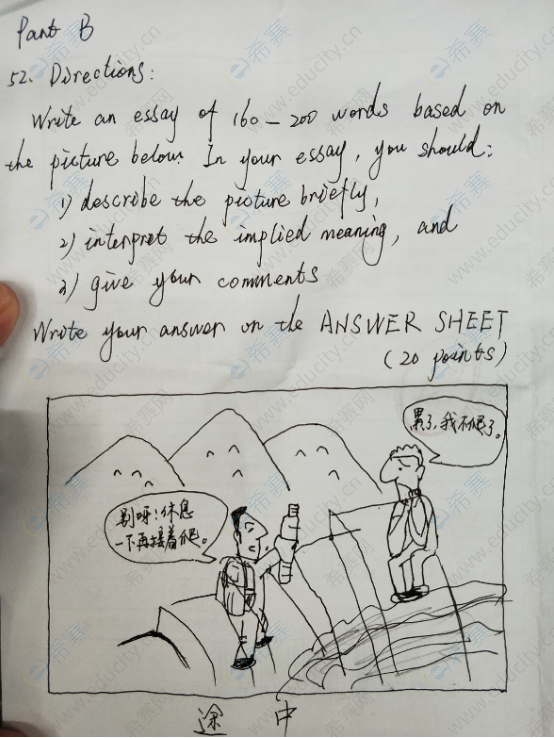 Part B
52. Directions:
Write an essay of 160-200 words based on
the picture below. In your essay, you should:
1) describe the picture briefly,
2) interpret the implied meaning, and
3) give your comments
Write your answer on the ANSWER SHEET
(20 points)
累了,我不爬了。
别呀!休息
一下再接着爬。
途中
希赛网
www.educity.cn